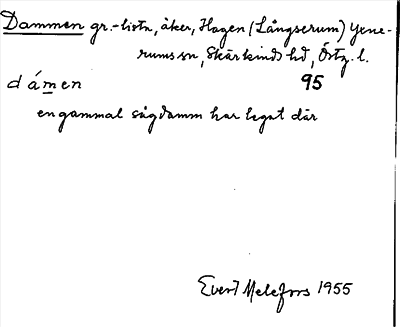 Dammen gr.-listn, åker, Hagen (Långserum) Yxne-
rums sn, Skärkinds hd, Östg. l.
dámen 95
en gammal sågdamm har legat där
Evert Melefors 1955